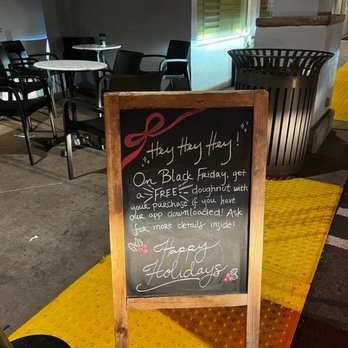 Hey Hey Hey!
On Black Friday, get
a FREE doughnut with
your purchase if you have
our app downloaded! Ask
for more details inside!
Happy
Holidays